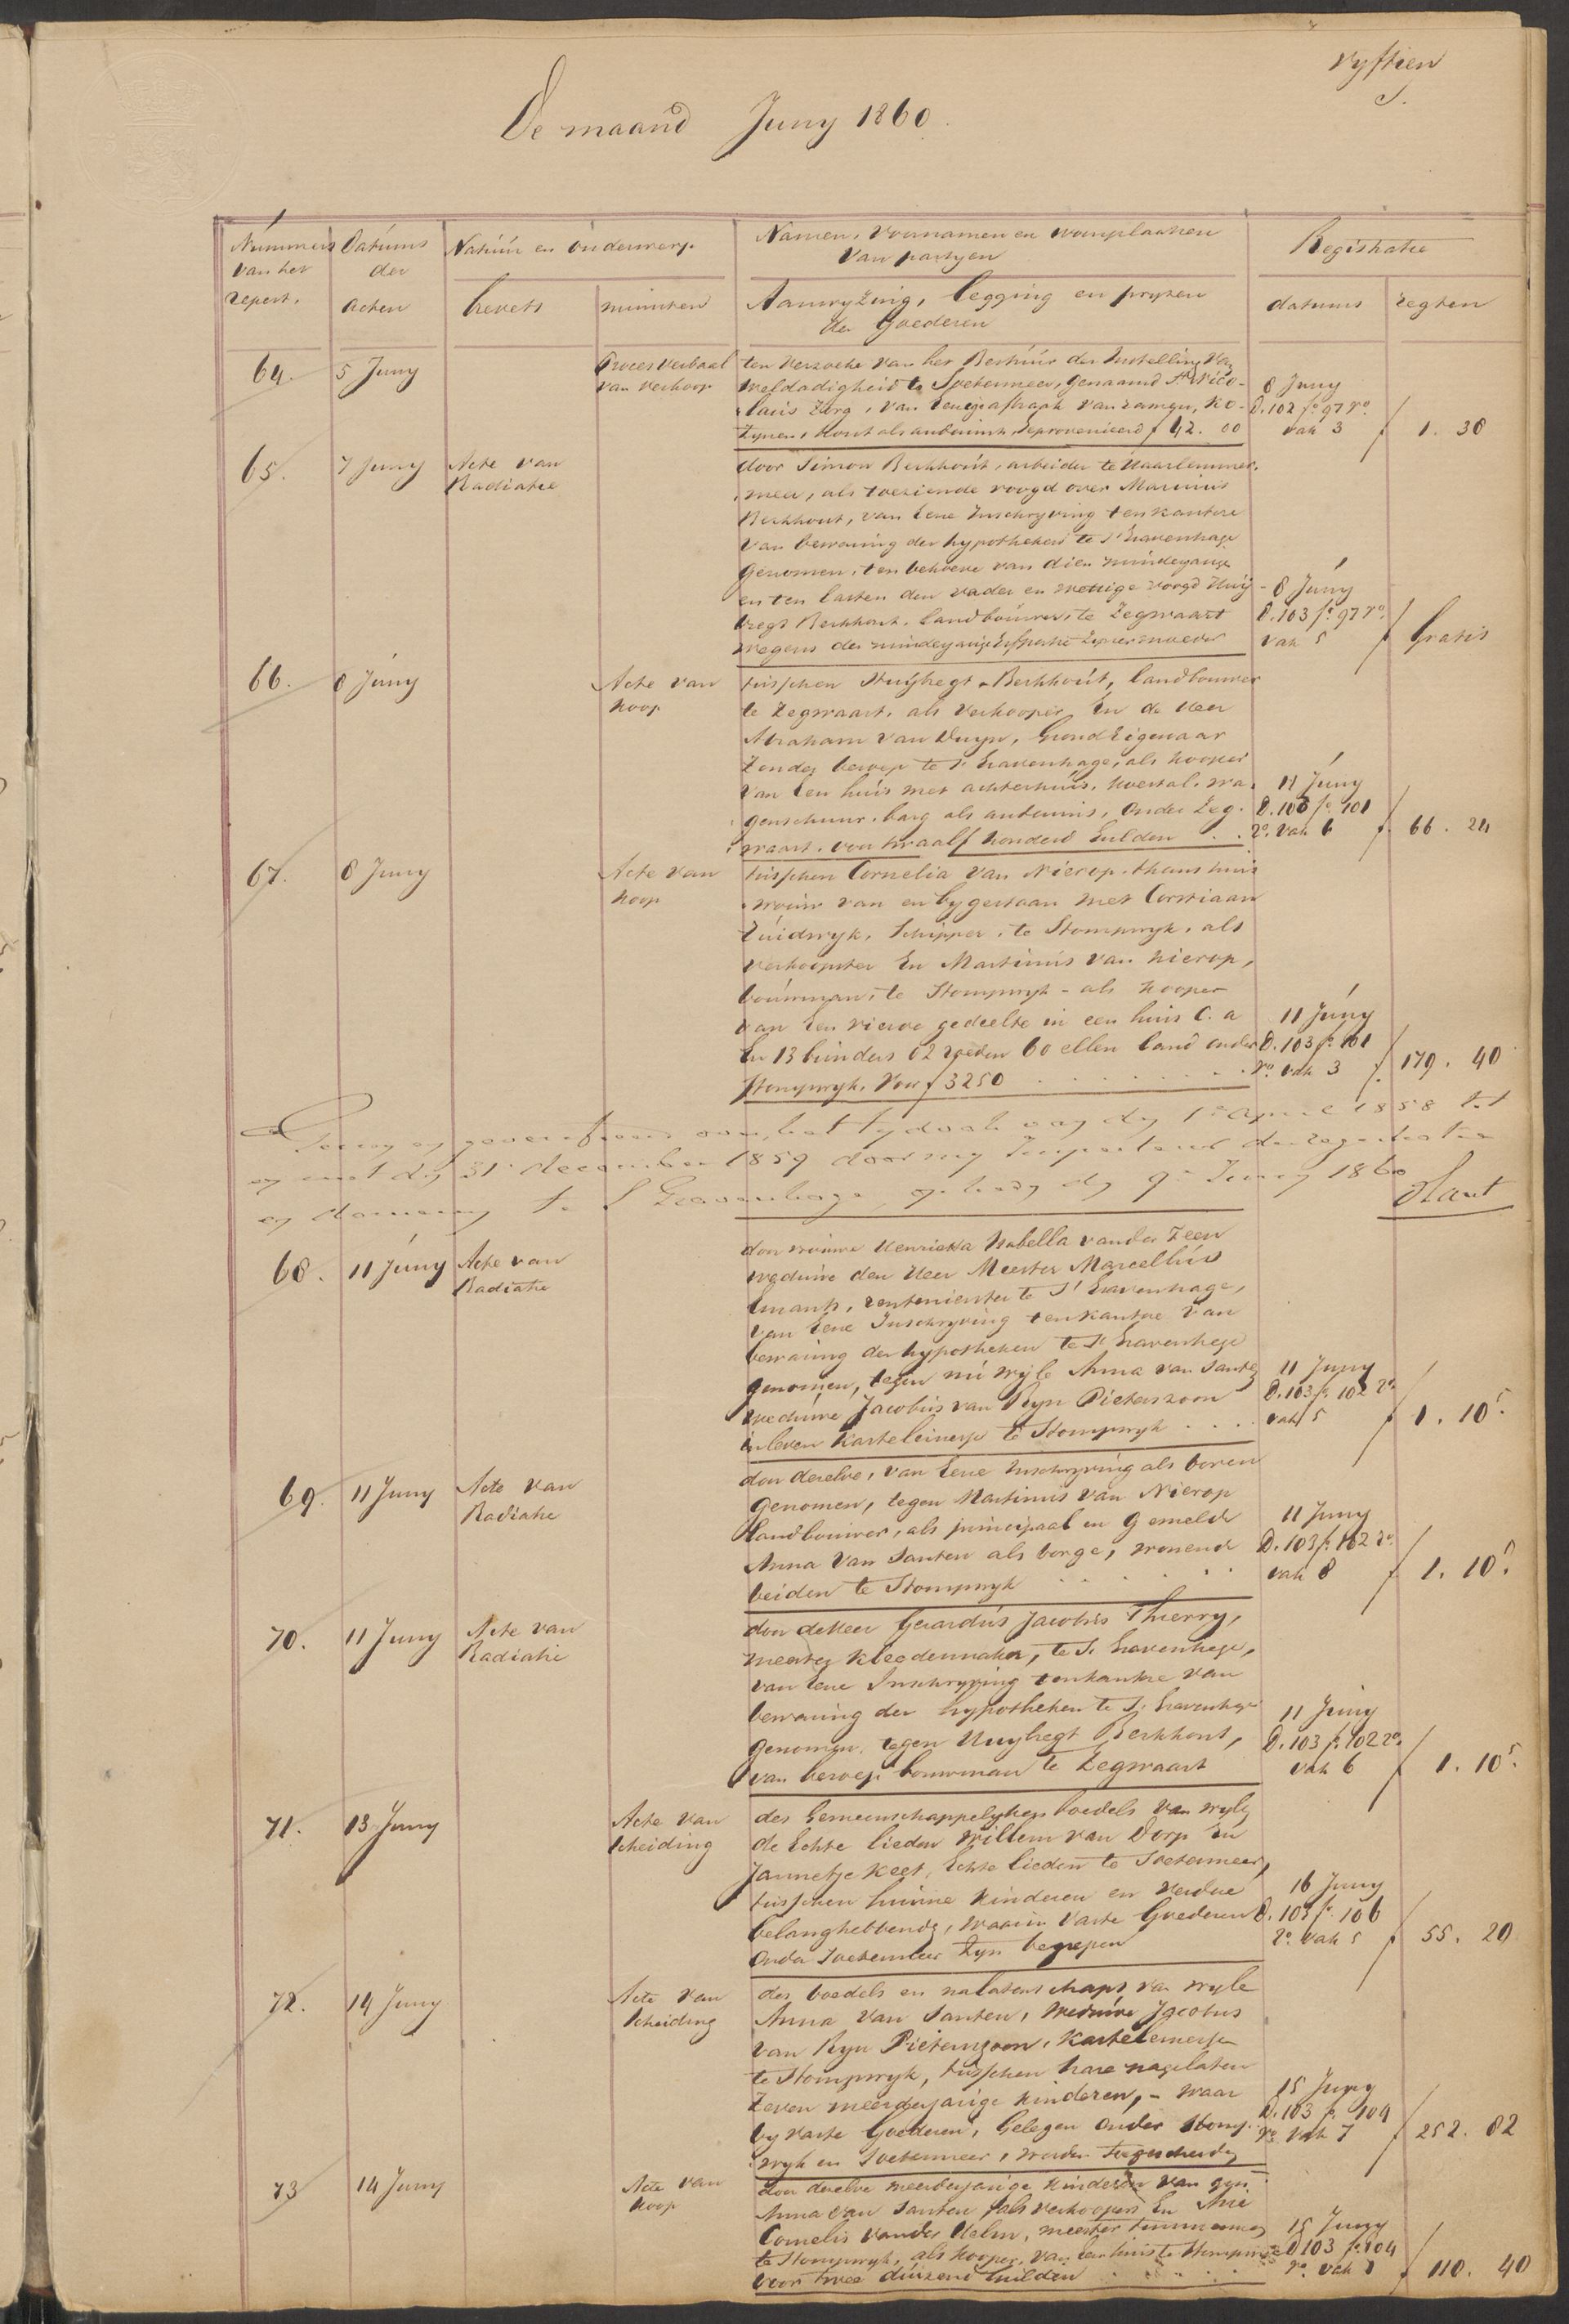 vyftien
De maand Juny 1860.
Nummers van het repert.
Datums der acten
Natuur en onderwerp
brevets
minuten
Namen, voornamen en woonplaatsen
van partyen
Aanwyzing, legging en pryzen
der Goederen
Registratie
datums
regten
64. 5 Juny
Proces verbaal
van verkoop
ten verzoeke van het Bestuur der Instelling van
weldadigheid te Soetermeer, genaamd St Nico-
laas Zorg, van
hout als anderzins, f 42.00
8 Juny
D. 102 fo 97 ro
vak 3
f 1.38
65. 7 Juny
Acte van
Radiatie
door Simon Berkhout, arbeider te Haarlemmer-
meer, als toeziende voogd over Marinus
Berkhout, van eene Inschryving ten kantore
van bewaring der hypotheken te 's Gravenhage
genomen, ten behoeve van dien minderjarige
en ten lasten den vader en wettige voogd Huy-
bregt Berkhout, landbouwer, te Zegwaart
wegens der minderjarige
8 Juny
D. 103 fo 97 ro
vak 5
f Gratis
66. 8 Juny
Acte van
koop
tusschen Huybregt Berkhout, landbouwer
te Zegwaart, als verkooper En de Heer
Abraham van Duyn, Grond Eigenaar
Zonder beroep te 's Gravenhage, als kooper
van een huis met achterhuis, koestal, wa-
genschuur, barg als anderzins, onder Zeg-
waart, voor twaalf honderd Gulden
11 Juny
D. 103 fo 101
ro vak 6
f 66.24
67. 8 Juny
Acte van
koop
tusschen Cornelia van Nierop, thans huis
vrouw van en bygestaan met Corstiaan
Zuidwyk, Schipper, te Stompwyk, als
verkoopster En Martinus van Nierop,
bouwman, te Stompwyk - als kooper
van een vierde gedeelte in een huis C. a
En 13 bunders 02 roeden 60 ellen land onder
Stompwyk, voor f 3250
11 Juny
D. 103 fo 101
ro vak 3
f 179.40
Gezien en geverifieerd over het tydvak van den 1e April 1858 tot
en met den 31 december 1859 door my Inspecteur der registratie
en domeinen te 's Gravenhage, op heden den 9e Juny 1860
68. 11 Juny
Acte van
Radiatie
door vrouwe Henrietta Isabella van der Zeen
weduwe den Heer Meester Marcellus
Emants, rentenierster te 's Gravenhage,
van Eene Inschryving ten kantore van
bewaring der hypotheken te 's Gravenhage
genomen, tegen nu wyle Anna van Santen
weduwe Jacobus van Ryn Pieterszoon
in leven kasteleinesse te Stompwyk
11 Juny
D. 103 fo 102 ro
vak 5
f 1.10⁵
69. 11 Juny
Acte van
Radiatie
door dezelve, van Eene Inschryving als boven
genomen, tegen Martinus van Nierop
landbouwer, als principaal en gemelde
Anna van Santen als borge, wonende
beiden te Stompwyk
11 Juny
D. 103 fo 102 ro
vak 8
f 1.10⁵
70. 11 Juny
Acte van
Radiatie
door de Heer Gerardus Jacobus Thierry,
meester kleedermaker, te 's Gravenhage,
van Eene Inschryving ten kantore van
bewaring der hypotheken te 's Gravenhage
genomen, tegen Huybregt Berkhout,
van beroep bouwman te Zegwaart
11 Juny
D. 103 fo 102 ro
vak 6
f 1.10⁵
71. 13 Juny
Acte van
scheiding
des Gemeenschappelyken boedels van wyle
de Echte lieden Willem van Dorp En
Jannetje Keet, Echte lieden te Soetermeer,
tusschen hunne kinderen en verdere
belanghebbende, waarin vaste Goederen
onder Soetermeer zyn begrepen
16 Juny
D. 103 fo 106
ro vak 5
f 55.20
72. 14 Juny
Acte van
scheiding
des boedels en nalatenschaps van wyle
Anna van Santen, weduwe Jacobus
van Ryn Pieterszoon, kasteleinesse
te Stompwyk, tusschen hare nagelaten
Zeven meerderjarige kinderen, - waar
by vaste Goederen, Gelegen onder Stomp-
wyk en Soetermeer, worden toegescheiden
15 Juny
D. 103 fo 104
ro vak 7
f 252.82
73 14 Juny
Acte van
koop
door dezelve meerderjarige kinderen van
Anna van Santen als verkoopers En
Cornelis van der Helm, meester timmerman
te Stompwyk, als kooper, van een huis te Stompwyk
voor twee duizend Gulden
15 Juny
D 103 fo 104
ro vak 8
f 110.40